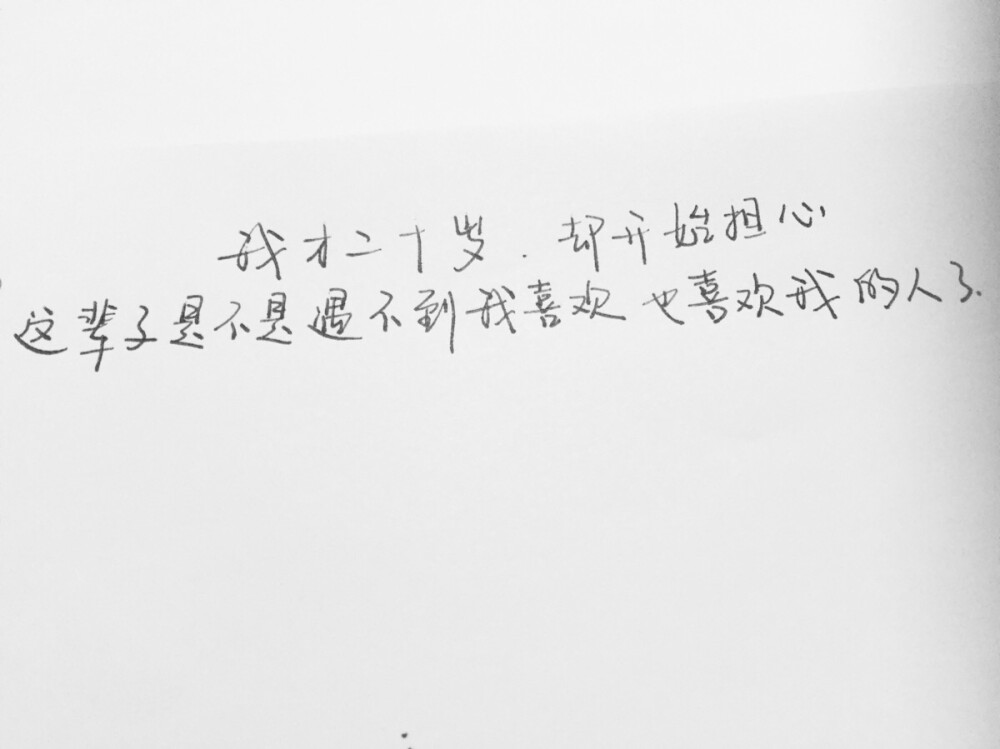 我才二十岁.却开始担心
这辈子是不是遇不到我喜欢也喜欢我的人了.